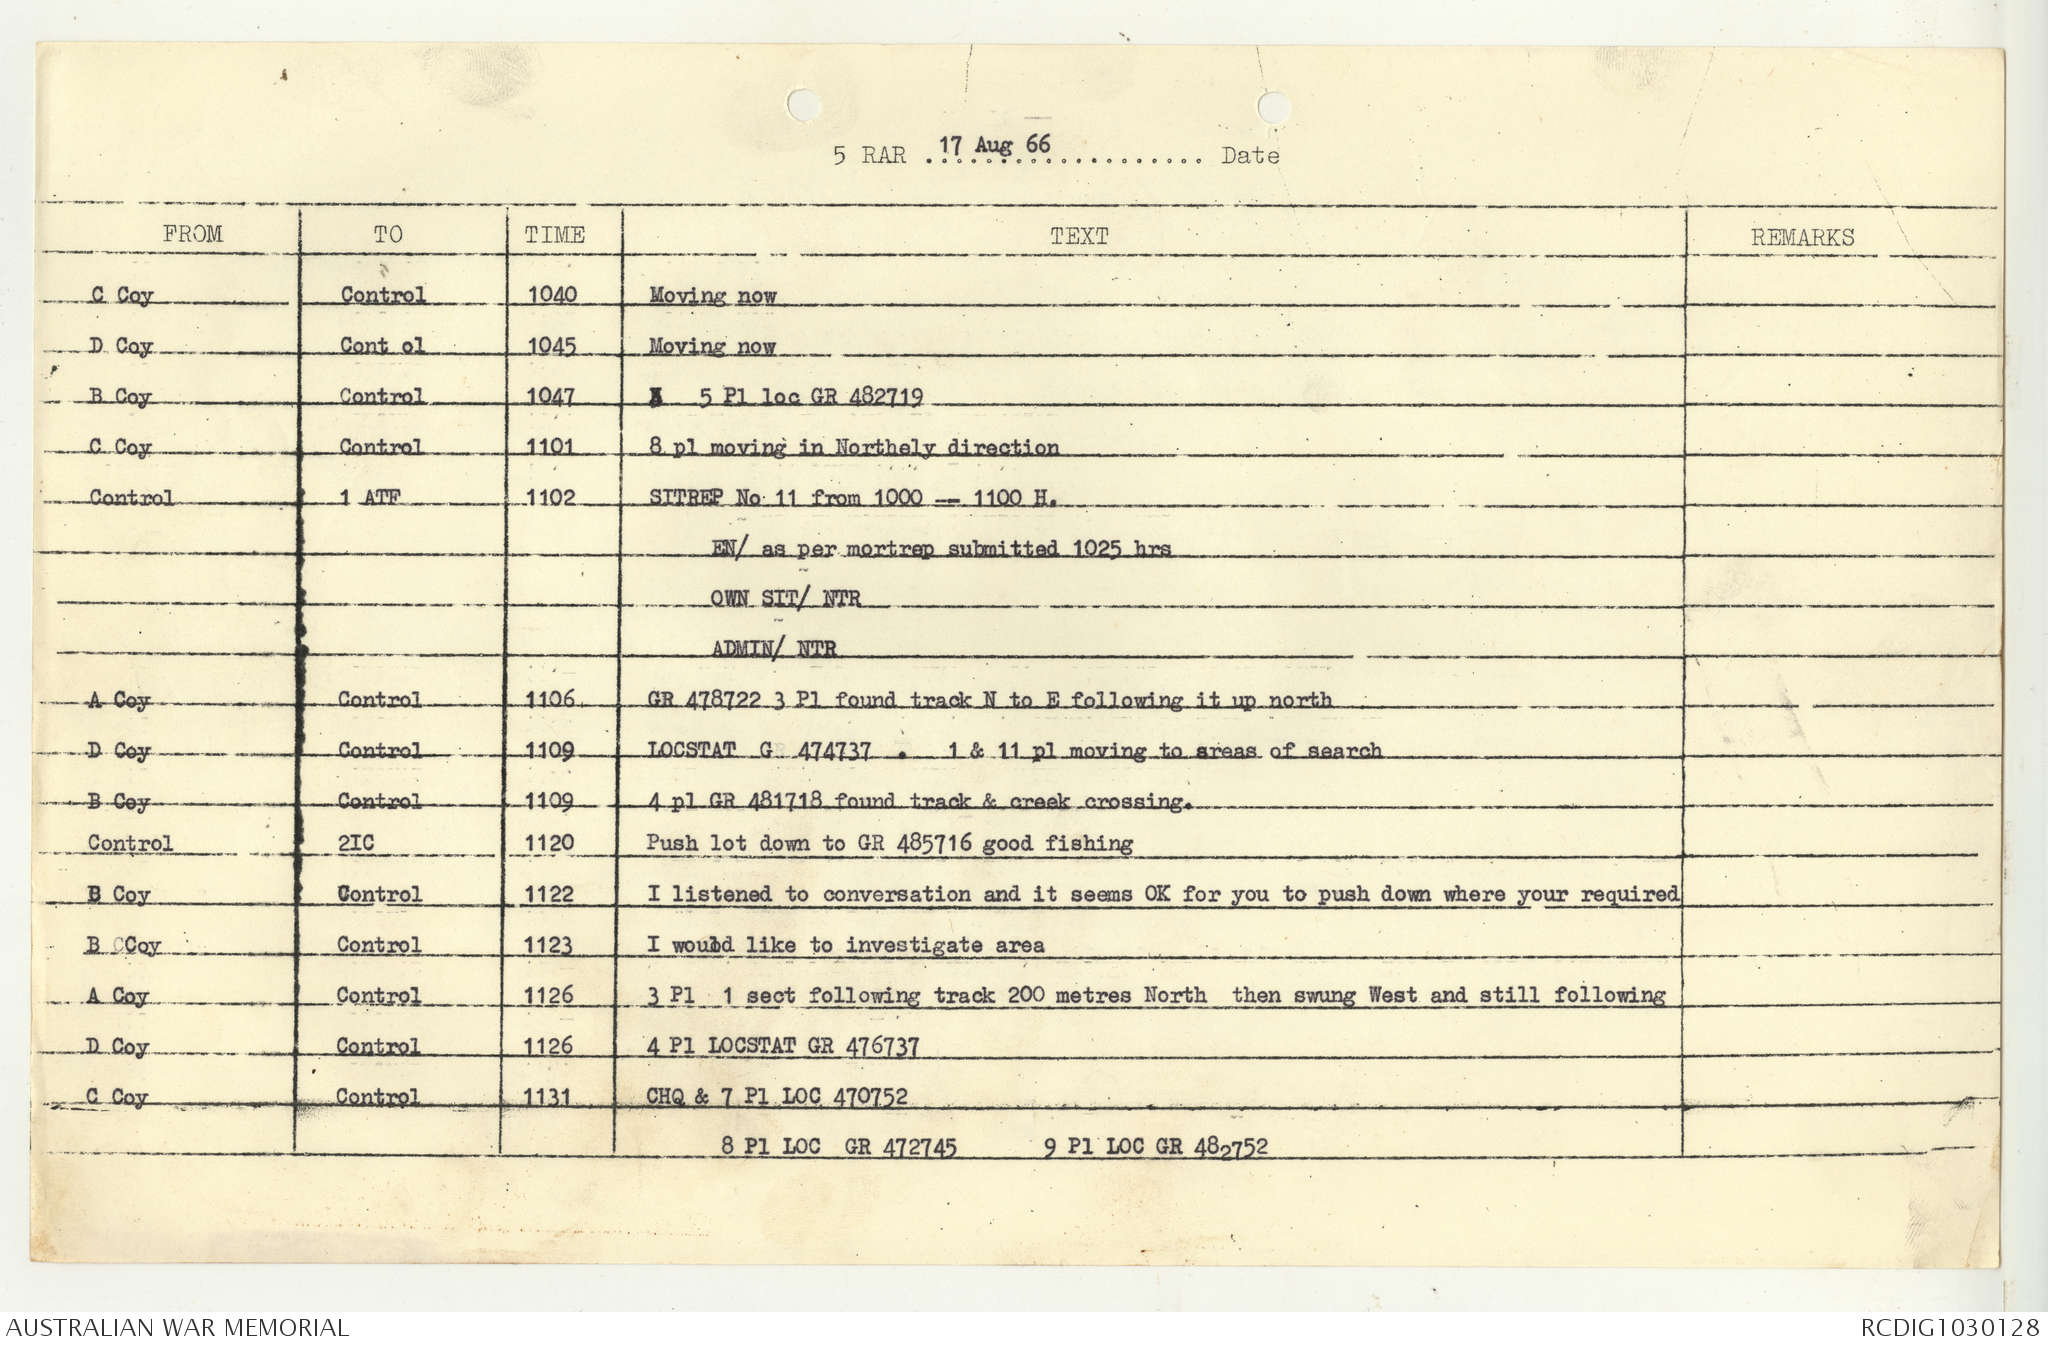 5 RAR 17 Aug 66 Date
FROM TO TIME TEXT REMARKS
C Coy Control 1040 Moving now
D Coy Cont ol 1045 Moving now
B Coy Control 1047 5 Pl loc GR 482719
C Coy Control 1101 8 pl moving in Northely direction
Control 1 ATF 1102 SITREP No 11 from 1000 -- 1100 H.
EN/ as per mortrep submitted 1025 hrs
OWN SIT/ NTR
ADMIN/ NTR
A Coy Control 1106 GR 478722 3 Pl found track N to E following it up north
D Coy Control 1109 LOCSTAT GR 474737 . 1 & 11 pl moving to areas of search
B Coy Control 1109 4 pl GR 481718 found track & creek crossing.
Control 2IC 1120 Push lot down to GR 485716 good fishing
B Coy Control 1122 I listened to conversation and it seems OK for you to push down where your required
B CCoy Control 1123 I would like to investigate area
A Coy Control 1126 3 Pl 1 sect following track 200 metres North then swung West and still following
D Coy Control 1126 4 Pl LOCSTAT GR 476737
C Coy Control 1131 CHQ & 7 Pl LOC 470752
8 Pl LOC GR 472745 9 Pl LOC GR 482752
AUSTRALIAN WAR MEMORIAL RCDIG1030128